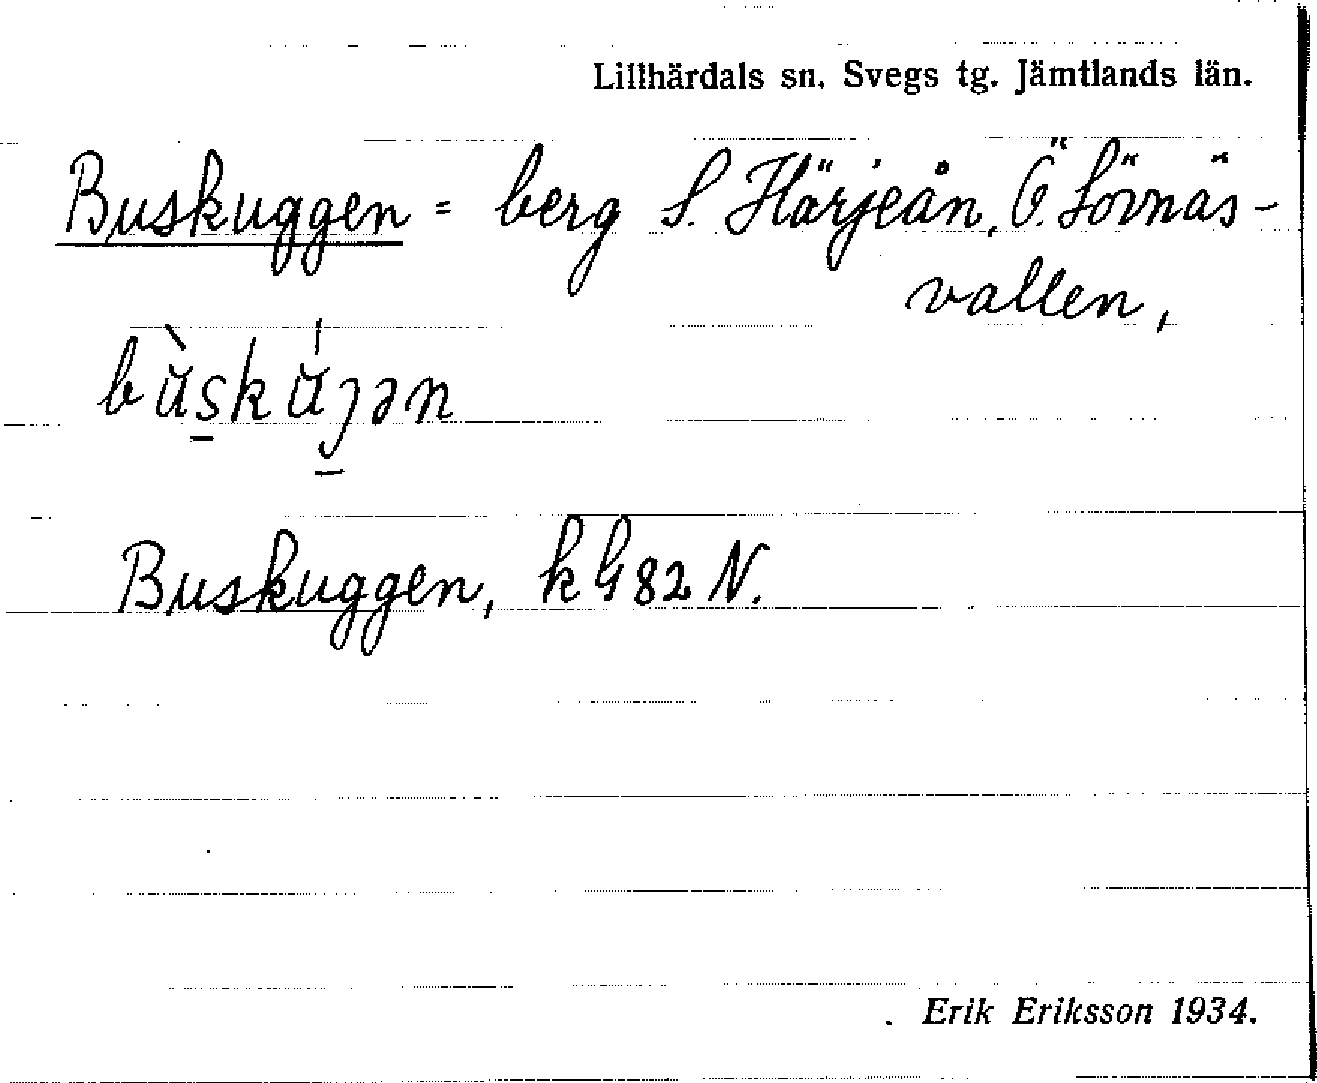 Lillhärdals sn. Svegs tg. Jämtlands län.
Buskuggen = berg S. Härjeån, Ö. Lövnäs-
vallen,
bŭ̀skŭ́ȷən
Buskuggen, kG82 N.
Erik Eriksson 1934.